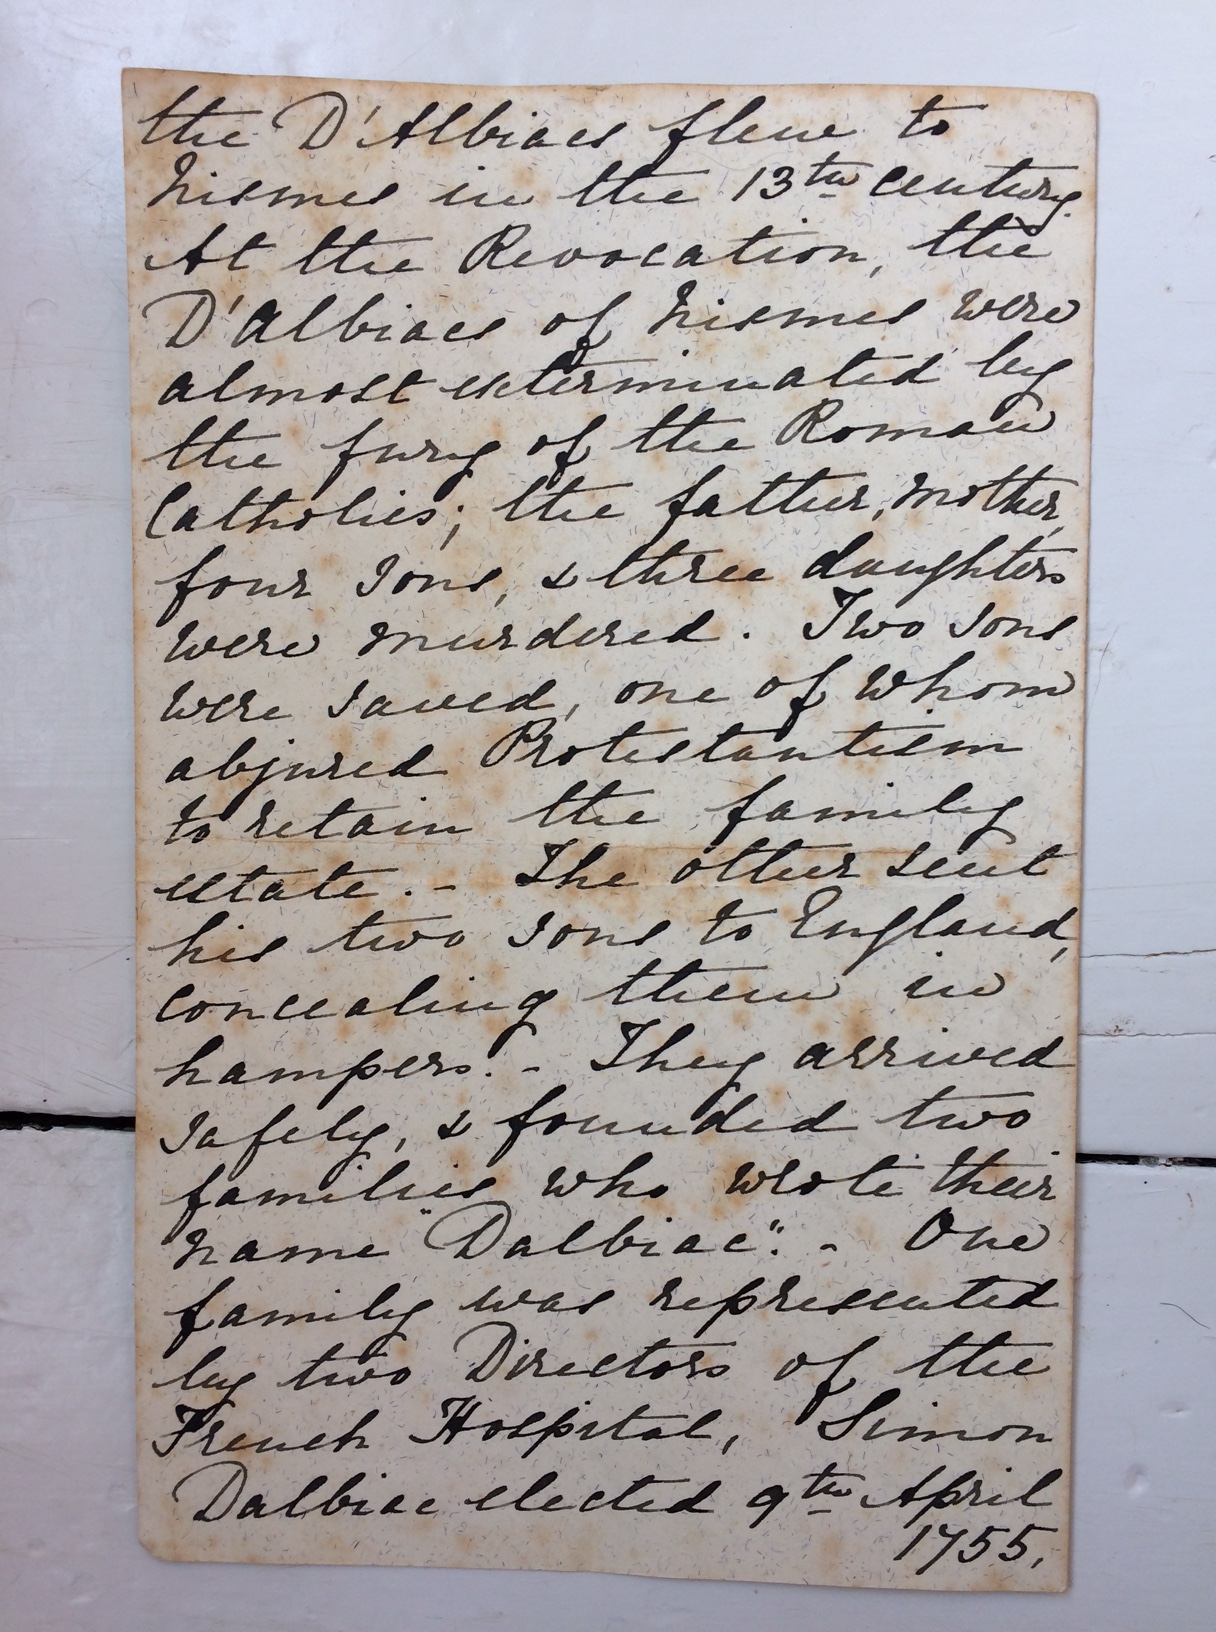 the D'Albiacs flew to
Nismes in the 13th century.
At the Revocation, the
D'Albiacs of Nismes were
almost exterminated by
the fury of the Roman
Catholics; the father, mother,
four sons, & three daughters
were murdered. Two sons
were saved, one of whom
abjured Protestantism
to retain the family
estate. - The other sent
his two sons to England,
concealing them in
hampers. - They arrived
safely, & founded two
families who wrote their
name "Dalbiac". - One
family was represented
by two Directors of the
French Hospital, Simon
Dalbiac elected 9th April
1755.